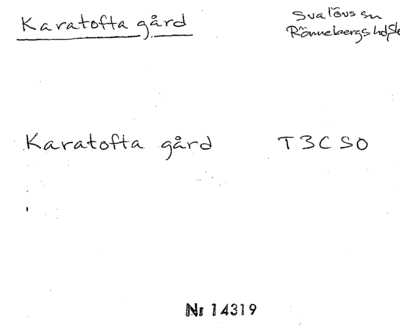 Karatofta gård
Svalövs sn
Rönnebergs hd, Sk
Karatofta gård T3C SO
Nr 14319